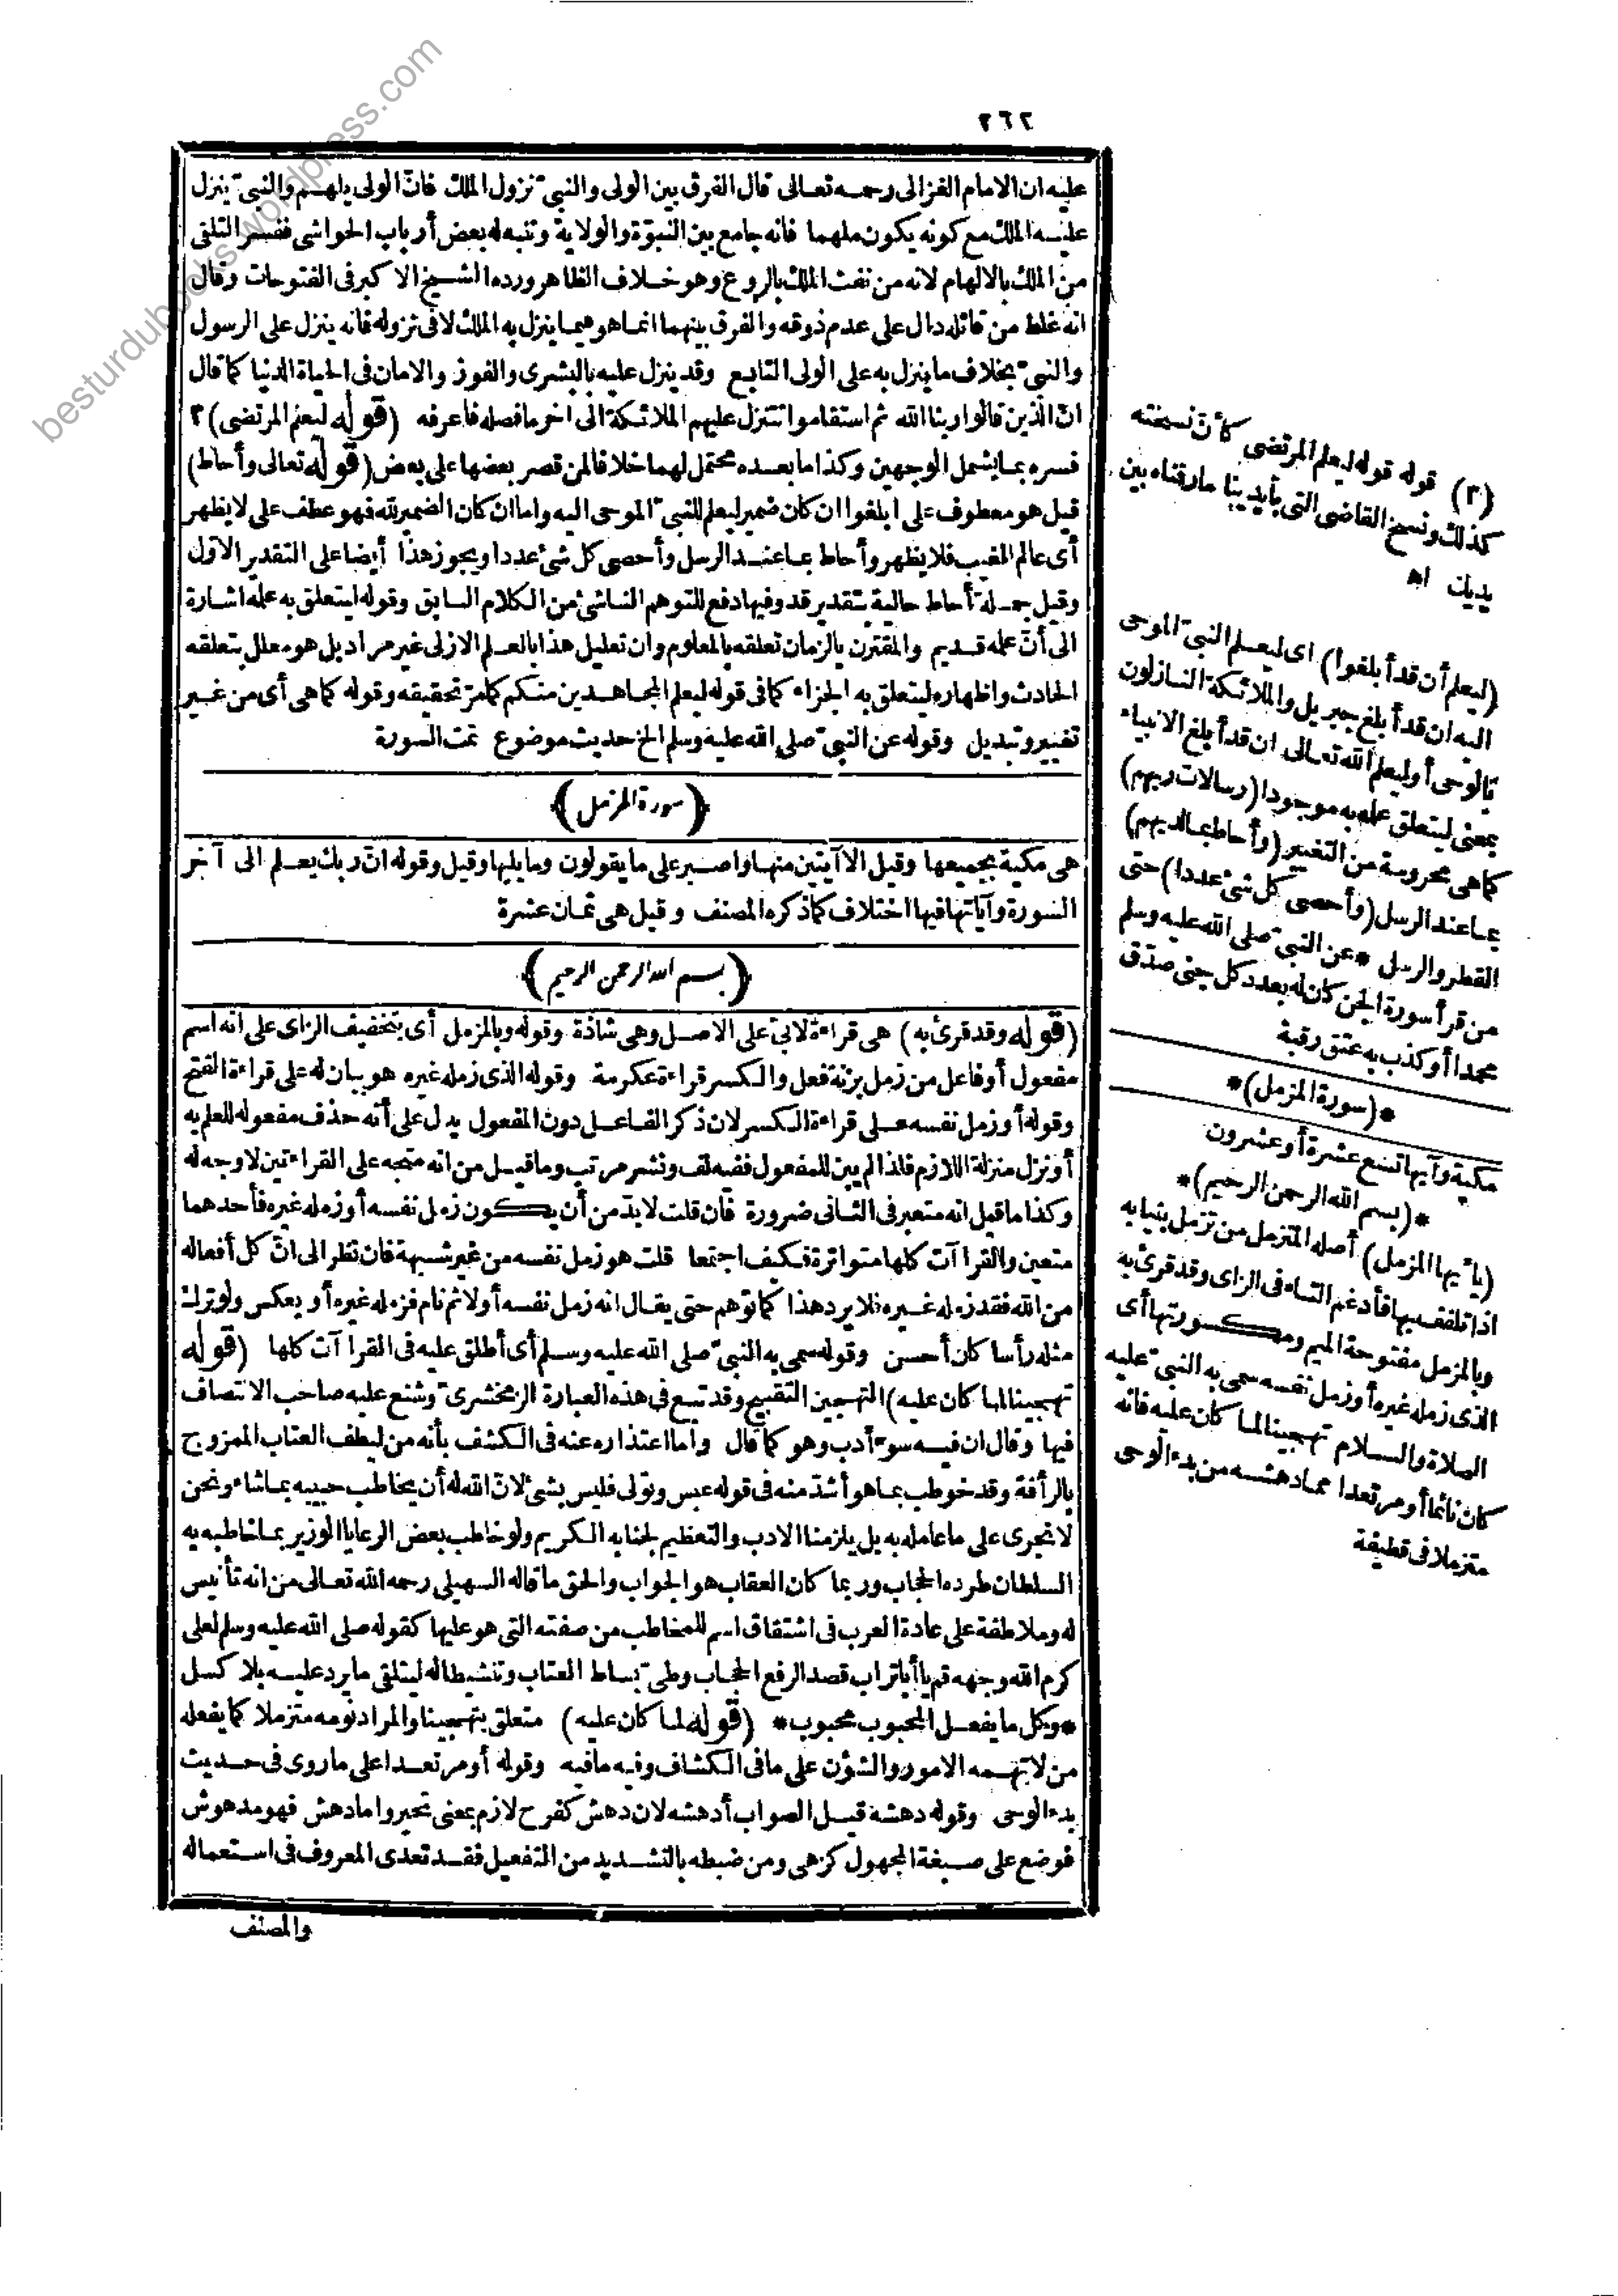 ٢٦٢
عليه ان الامام الغزالى رحمه تعالى قال الفرق بين الولى والنبىّ نزول الملك فانّ الولى يلهم والنبىّ ينزل
عليه الملك مع كونه يكون ملهما فانه جامع بين النبوّة والولاية وتنبه له بعض أرباب الحواشى ففسر التلقى
من الملك بالالهام لانه من نفث الملك بالروع وهو خلاف الظاهر ورده الشيخ الاكبر فى الفتوحات وقال
انه غلط من قائله دال على عدم ذوقه والفرق بينهما انما هو فيما ينزل به الملك لا فى نزوله فانه ينزل على الرسول
والنبىّ بخلاف ما ينزل به على الولى التابع وقد ينزل عليه بالبشرى والفوز والامان فى الحياة الدنيا كما قال
انّ الذين قالوا ربنا الله ثم استقاموا تتنزل عليهم الملائكة الى اخر ما فصله فاعرفه (قوله ليعلم المرتضى) ٣
فسره بما يشمل الوجهين وكذا ما بعده محتمل لهما خلافا لمن قصر بعضها على بعض (قوله تعالى وأحاط)
قيل هو معطوف على ابلغوا ان كان ضمير ليعلم للنبىّ الموحى اليه واما ان كان الضمير لله فهو عطف على لا يظهر
أى عالم الغيب فلا يظهر وأحاط بما عند الرسل وأحصى كل شئ عددا ويجوز هذا أيضا على التقدير الاول
وقيل جملة أحاط حالية بتقدير قد وفيها دفع للتوهم الناشئ من الكلام السابق وقوله ليتعلق به علمه اشارة
الى أنّ علمه قديم والمقترن بالزمان تعلقه بالمعلوم وان تعليل هذا بالعلم الازلى غير مراد بل هو معلل بتعلقه
الحادث واظهاره ليتعلق به الجزاء كما فى قوله ليعلم المجاهدين منكم كما مرّ تحقيقه وقوله كما هى أى من غير
تغيير وتبديل وقوله عن النبىّ صلى الله عليه وسلم الخ حديث موضوع تمت السورة
(سورة المزمل)
هى مكية بجميعها وقيل الا آيتين منها واصبر على ما يقولون وما يليها وقيل وقوله انّ ربك يعلم الى آخر
السورة وآياتها فيها اختلاف كما ذكره المصنف وقيل هى ثمان عشرة
(بسم الله الرحمن الرحيم)
(قوله وقد قرئ به) هى قراءة لابىّ على الاصل وهى شاذة وقوله وبالمزمل أى بتخفيف الزاى على انه اسم
مفعول أو فاعل من زمل بزنة فعل والكسر قراءة عكرمة وقوله الذى زمله غيره هو بيان له على قراءة الفتح
وقوله أو زمل نفسه على قراءة الكسر لان ذكر الفاعل دون المفعول يدل على أنه حذف مفعوله للعلم به
أو نزل منزلة اللازم فلذا لم يبن للمفعول ففيه لف ونشر مرتب وما قيل من انه متجه على القراءتين لا وجه له
وكذا ما قيل انه متعبر فى الثانى ضرورة فان قلت لا بدّ من أن يكون زمل نفسه أو زمله غيره فأحدهما
متعين والقرا آت كلها متواترة فكيف اجتمعا قلت هو زمل نفسه من غير شبهة فان نظر الى انّ كل أفعاله
من الله فقد زمله غيره فلا يرد هذا كما توهم حتى يقال انه زمل نفسه أولا ثم نام فزمله غيره أو يعكس ولو ترك
مثله رأسا كان أحسن وقوله سمى به النبىّ صلى الله عليه وسلم أى أطلق عليه فى القرا آت كلها (قوله
تهجينا لما كان عليه) التهجين التقبيح وقد تبع فى هذه العبارة الزمخشرىّ وشنع عليه صاحب الانتصاف
فيها وقال ان فيه سوء أدب وهو كما قال واما اعتذاره عنه فى الكشف بأنه من لطف العتاب الممزوج
بالرأفة وقد خوطب بما هو أشدّ منه فى قوله عبس وتولى فليس بشئ لانّ الله له أن يخاطب حبيبه بما شاء ونحن
لا نجرى على ما عامله به بل يلزمنا الادب والتعظيم لجنابه الكريم ولو خاطب بعض الرعايا الوزير بما خاطبه به
السلطان طرده الحجاب وربما كان العقاب هو الجواب والحق ما قاله السهيلى رحمه الله تعالى من انه تأنيس
له وملاطفة على عادة العرب فى اشتقاق اسم للمخاطب من صفته التى هو عليها كقوله صلى الله عليه وسلم لعلى
كرم الله وجهه قم يا أبا تراب قصد الرفع الحجاب وطىّ بساط العتاب وتنشيطا له ليتلقى ما يرد عليه بلا كسل
*وكل ما يفعل المحبوب محبوب* (قوله لما كان عليه) متعلق بتهجينا والمراد نومه متزملا كما يفعله
من لا تهمه الامور والشؤن على ما فى الكشاف وفيه ما فيه وقوله أو مرتعدا على ما روى فى حديث
بدء الوحى وقوله دهشة قيل الصواب أدهشه لان دهش كفرح لازم بمعنى تحير واما دهش فهو مدهوش
فوضع على صيغة المجهول كزهى ومن ضبطه بالتشديد من التفعيل فقد تعدى المعروف فى استعماله
والمصنف
(٣) قوله قوله ليعلم المرتضى كأنّ نسخته
كذلك ونسخ القاضى التى بأيدينا ما رقناه بين
يديك اه
(ليعلم أن قد أبلغوا) اى ليعلم النبىّ الموحى
اليه ان قد أبلغ جبريل والملائكة النازلون
بالوحى أو ليعلم الله تعالى ان قد أبلغ الانبياء
بمعنى ليتعلق علمه به موجودا (رسالات ربهم)
كما هى محروسة من التغيير (وأحاط بما لديهم)
بما عند الرسل (وأحصى كل شئ عددا) حتى
القطر والرمل * عن النبىّ صلى الله عليه وسلم
من قرأ سورة الجن كان له بعدد كل جنى صدّق
محمدا أو كذب به عتق رقبة
*(سورة المزمل)*
مكية وآيها تسع عشرة أو عشرون
*(بسم الله الرحمن الرحيم)*
(يا أيها المزمل) أصله المتزمل من تزمل بثيابه
اذا تلفف بها فأدغم التاء فى الزاى وقد قرئ به
وبالمزمل مفتوحة الميم ومكسورتها أى
الذى زمله غيره أو زمل نفسه سمى به النبىّ عليه
الصلاة والسلام تهجينا لما كان عليه فانه
كان نائما أو مرتعدا مما دهشه من بدء الوحى
متزملا فى قطيفة
besturdubooks.wordpress.com